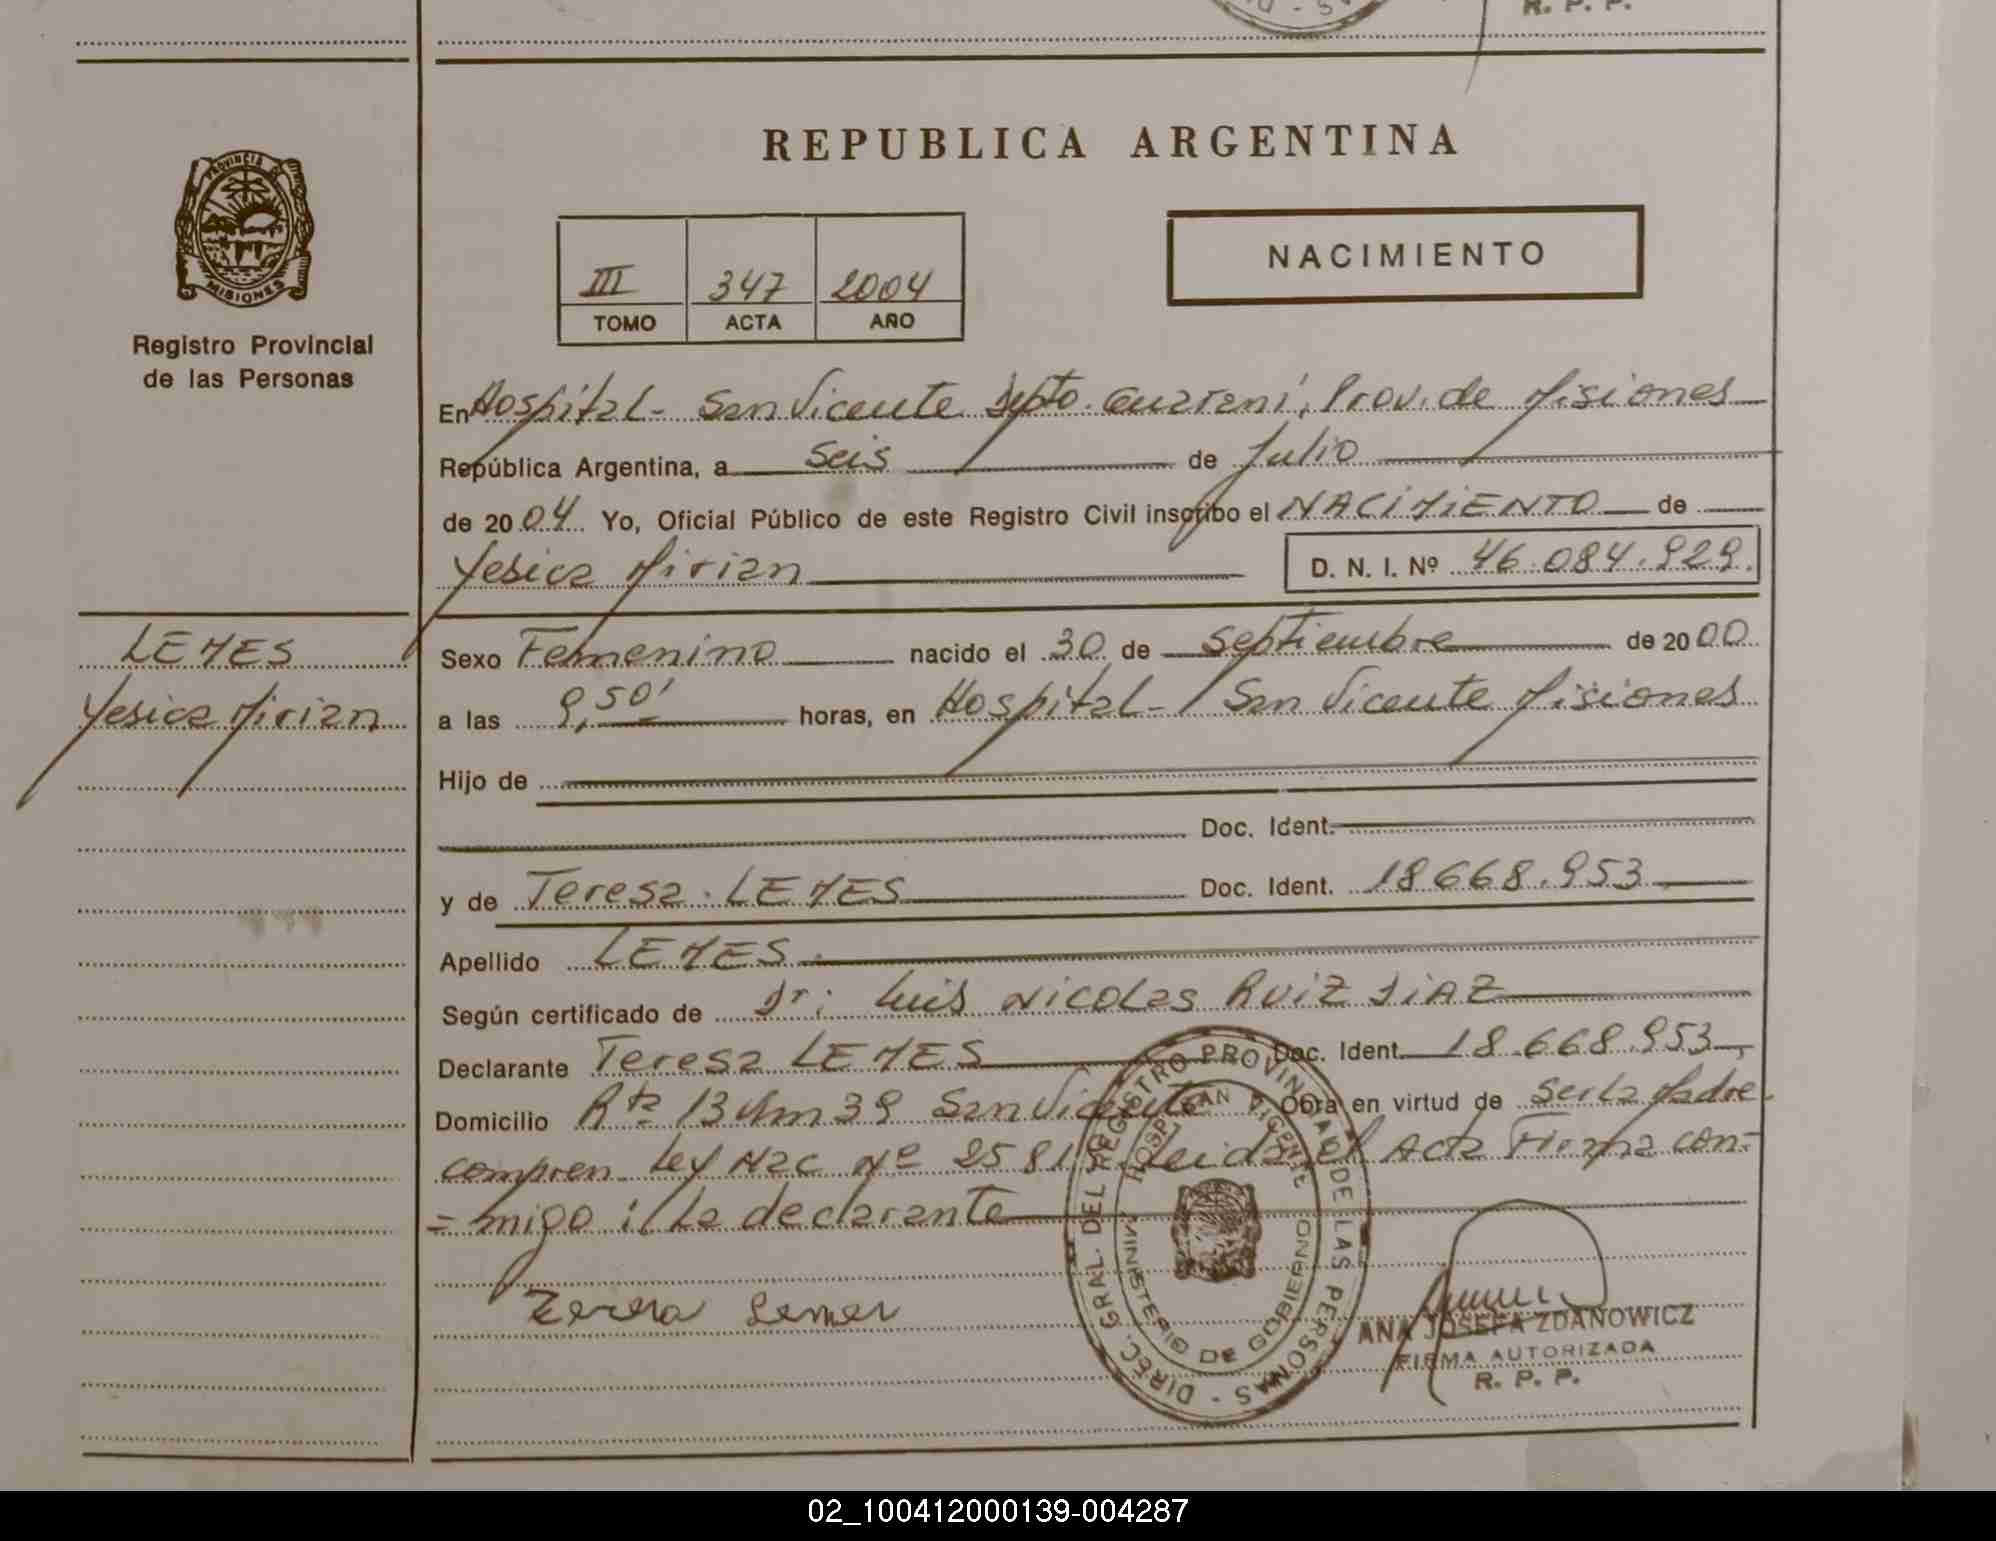 R. P. P.
PROVINCIA DE
MISIONES
Registro Provincial
de las Personas
REPUBLICA ARGENTINA
III 347 2004
TOMO ACTA AÑO
NACIMIENTO
En Hospital - San Vicente Dpto. Guaraní, Prov. de Misiones
República Argentina, a seis de Julio
de 2004 Yo, Oficial Público de este Registro Civil inscribo el NACIMIENTO de
Yesica Mirian D. N. I. Nº 46.084.929.
LEMES
Yesica Mirian
Sexo Femenino nacido el 30 de Septiembre de 2000
a las 9,50' horas, en Hospital - San Vicente Misiones
Hijo de
Doc. Ident.
y de Teresa LEMES Doc. Ident. 18.668.953
Apellido LEMES
Según certificado de Dr: Luis Nicolas RUIZ DIAZ
Declarante Teresa LEMES Doc. Ident. 18.668.953
Domicilio Rta 13 Km 39 San Vicente Obra en virtud de ser la Madre
compren. Ley Nac Nº 2581 Leida el Acta Firma con=
=migo: La declarante
Teresa Lemes
DIREC. GRAL. DEL REGISTRO PROVINCIAL DE LAS PERSONAS -
HOSP. SAN VICENTE
MINISTERIO DE GOBIERNO
ANA JOSEFA ZDANOWICZ
FIRMA AUTORIZADA
R. P. P.
02_100412000139-004287